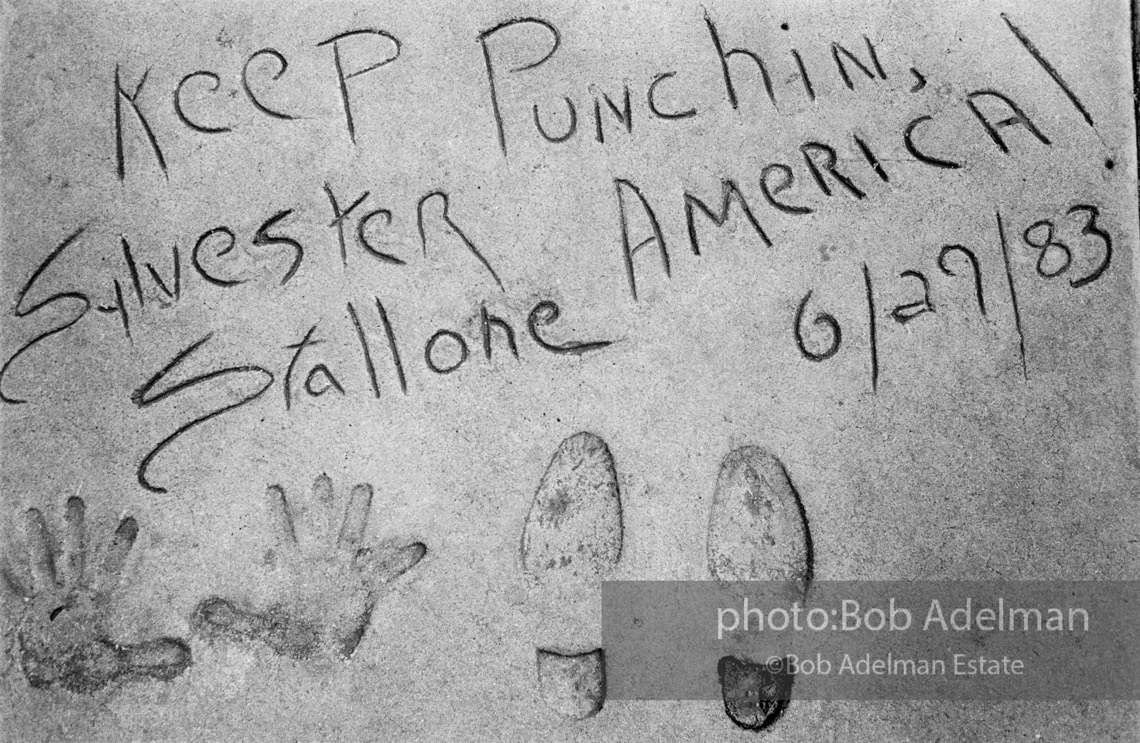 Keep Punchin,
America!
Sylvester
Stallone
6/29/83
photo:Bob Adelman
©Bob Adelman Estate